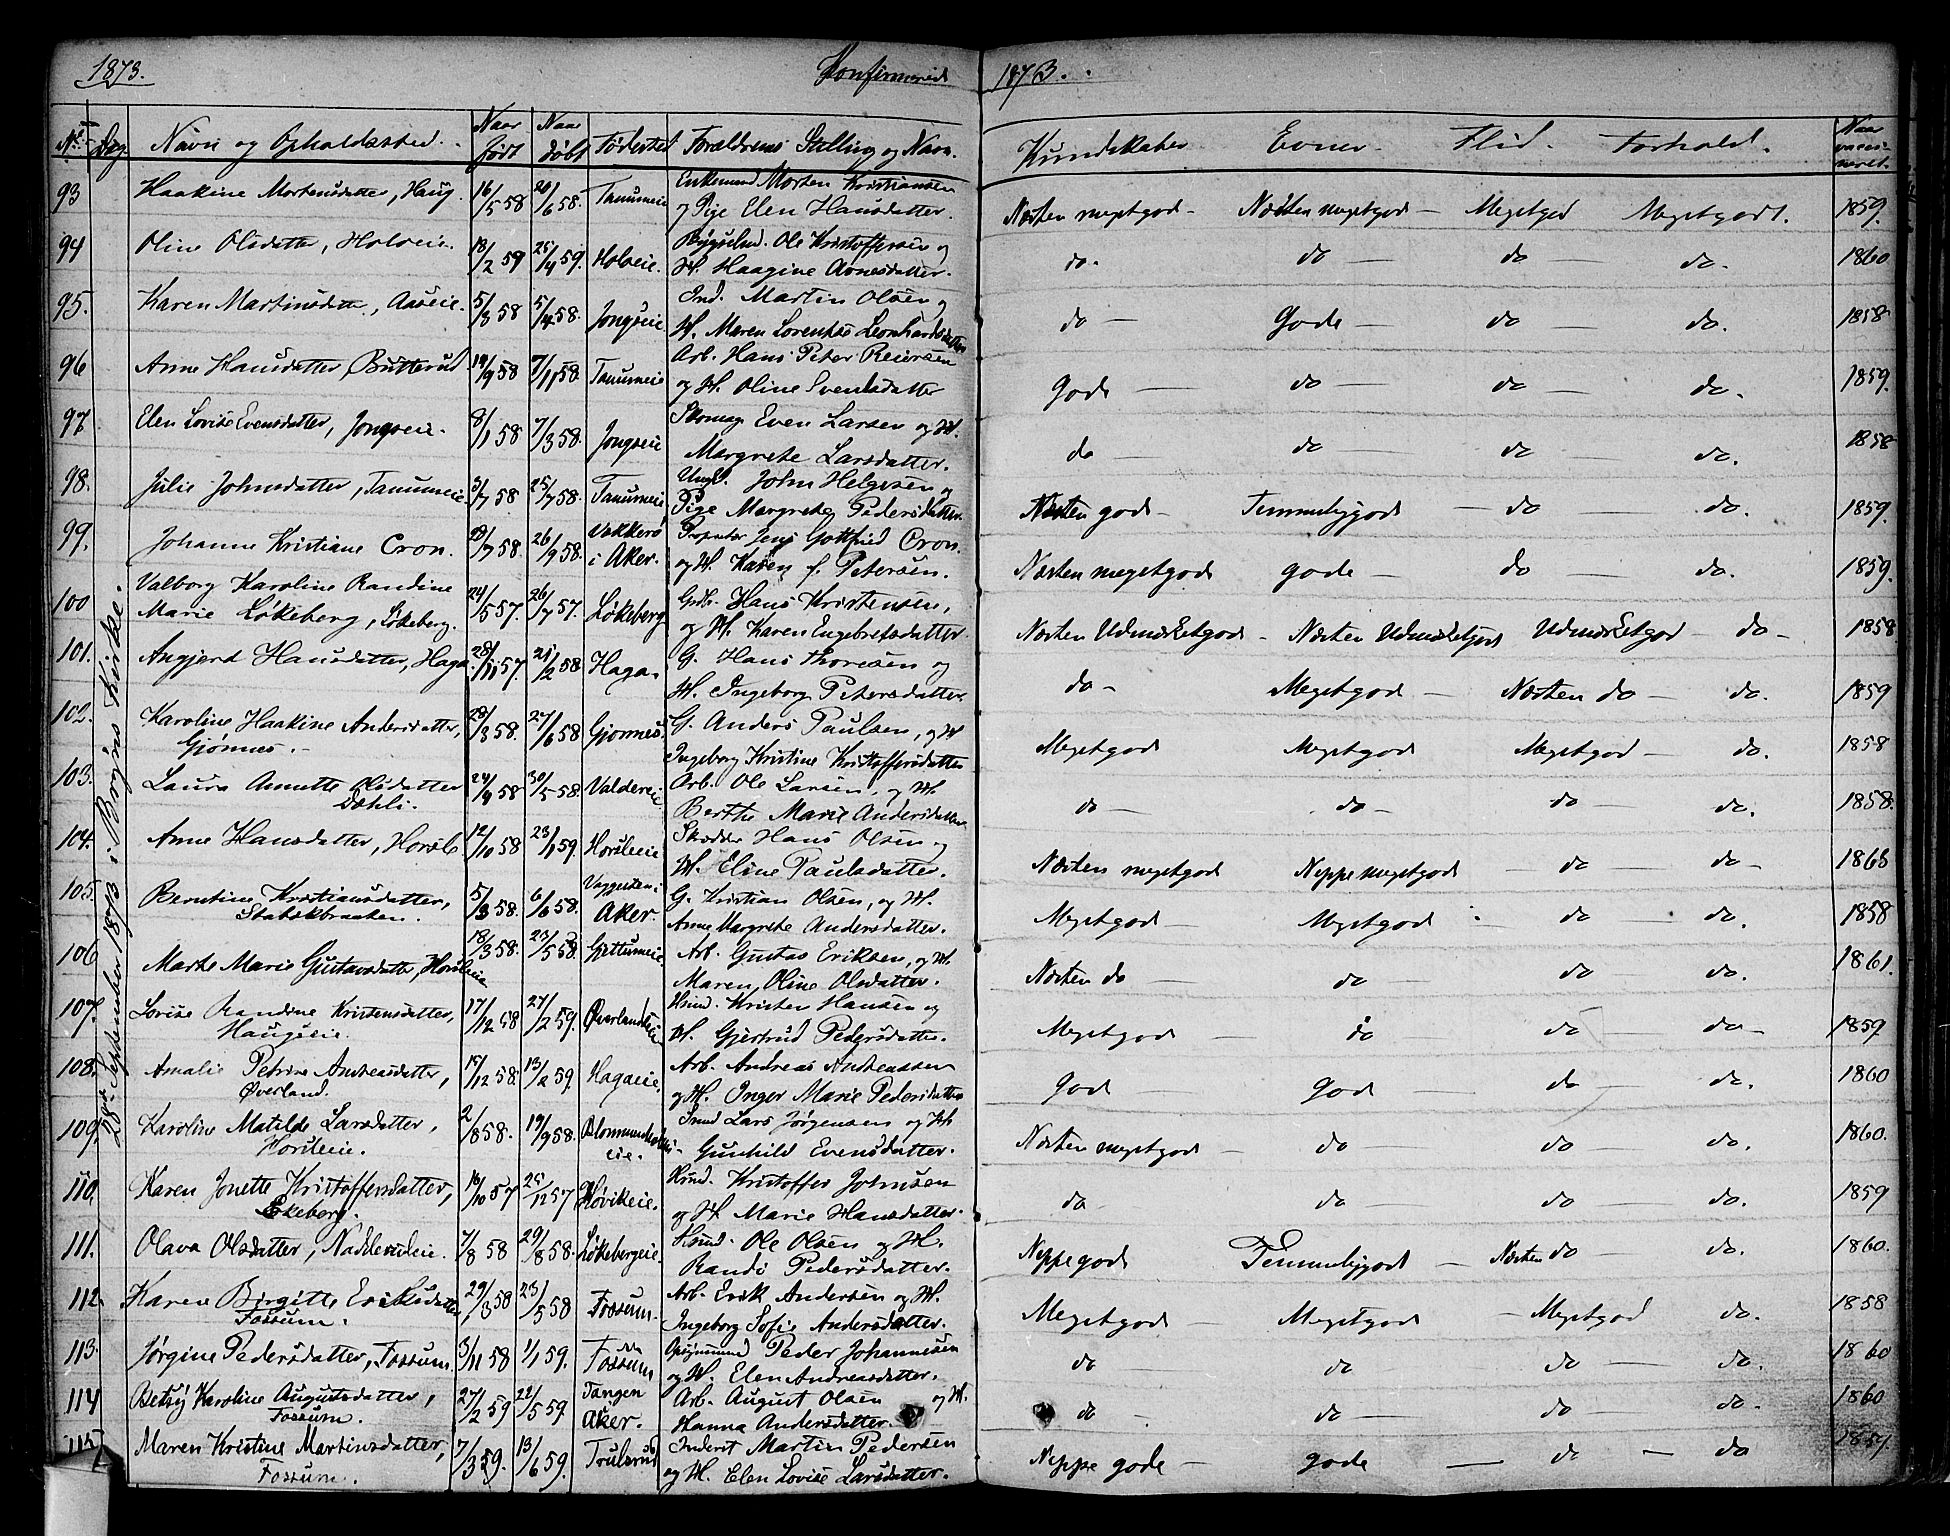 1873. Konfirmerede 1873.
No. Dag Navn og Opholdssted. Naar født Naar døbt Fødested Forældrenes Stilling og Navn. Kundskaber Evner. Flid. Forhold. Naar vaccineret.
28de September 1873 i Bryns Kirke.
93 Haakine Mortensdatter, Haug. 16/5 58 20/6 58. Tanumeie Enkemand Morten Kristiansen
og Pige Elen Hansdatter. Næsten megetgod - Næsten megetgod - Megetgod Megetgodt. 1859.
94 Oline Olsdatter, Holseie. 18/2 59 25/4 59. Holseie. Bygselmd. Ole Kristoffersen og
H. Haagine Arnesdatter. do. do - do - do. 1860
95. Karen Martinsdatter, Aaseie. 5/3 58 5/4 58. Jongseie Ind. Martin Olsen og
H. Maren Lorentse Leonhardsdatter do - Gode - do - do. 1858
96 Anne Hansdatter Butterud 19/9 58 7/11 58. Tanumeie Arb. Hans Peter Reiersen
og H. Oline Svendsdatter Gode - do - do - do. 1859.
97 Elen Lovise Evensdatter, Jongseie. 8/1 58 7/3 58. Jongseie Skomag Even Larsen og H.
Margrete Larsdatter. do - do - do - do. 1858
98. Julie Johnsdatter, Tanumeie. 3/7 58 25/7 58. Tanumeie Ungk. John Helgesen og
Pige Margrete Pedersdatter. Næsten god - Temmeliggod - do - do. 1859.
99. Johanne Kristiane Cron. 20/7 58. 26/9 58. Vækkerø i Aker. Proprietær Jens Gottfried Cron.
og H. Karen f. Petersen. Næsten megetgod gode - do - do. 1859.
100 Valborg Karoline Randine
Marie Løkeberg, Løkeberg. 24/5 57. 26/7 57. Løkeberg Grdb. Hans Kristensen,
og H. Karen Engebretsdatter. Næsten Udmærketgod - Næsten Udmærketgod Udmærketgod - do - 1858
101. Angjerd Hansdatter, Haga. 28/11 57 21/2 58 Haga. G. Hans Thoresen og
H. Ingeborg Petersdatter. do - Megetgod - Næsten do - do. 1859
102. Karoline Haakine Andersdatter,
Gjønnes. - 28/3 58. 27/6 58 Gjønnes. G. Anders Paulsen, og H
Ingeborg Kristine Kristoffersdatter Megetgod Megetgod Megetgod - do. 1858
103. Laura Annette Olsdatter
Dæhli. 24/4 58 30/5 58. Valdereie Arb. Ole Larsen, og H.
Berthe Marie Andersdatter do - do - do - do. 1858.
104. Anne Hansdatter, Horsle 12/10 58 23/1 59. Horsleeie Skrædder Hans Olsen og
H. Eline Paulsdatter. Næsten megetgod Neppe megetgod - do - do - 1868
105. Berntine Kristiansdatter,
Stabækbraaten. 5/3 58. 6/6 58. i Aker. G. Kristian Olsen, og H.
Anne Margrete Andersdatter. Megetgod - Megetgod - do - do. 1858
106 Marte Marie Gustavsdatter, Horsleeie 18/3 58. 23/5 58 Gjettumeie. Arb. Gustav Eriksen, og H.
Maren Oline Olsdatter. Næsten do do - do - do. 1861.
107. Lovise Randine Kristensdatter,
Haugseie. 17/12 58 27/2 59. Øverlandseie Husmd. Kristen Hansen og
H. Gjertrud Pedersdatter. Megetgod - do do - do - 1859.
108. Amalie Petrine Andreasdatter,
Øverland. 15/12 58. 13/2 59. Hagaeie. Arb. Andreas Andreassen
og H. Inger Marie Pedersdatter god god - do - do. 1860
109. Karoline Matilde Larsdatter,
Horsleeie. 2/8 58. 19/9 58. Blommenholmseie. Smed Lars Jørgensen og H
Gunhild Evensdatter. Næsten megetgod - do - do - do. 1860.
110. Karen Jonette Kristoffersdatter,
Ekeberg. 19/10 57 25/12 57 Høvikeie. Husmd. Kristoffer Johnsen
og H. Marie Hansdatter. do do - do - do. 1859
111. Olava Olsdatter, Nadderudeie. 7/8 58 29/8 58. Løkebergeie. Husmd. Ole Olsen og H.
Randi Pedersdatter. Neppe god Temmeliggod - Næsten do - do. 1860.
112. Karen Birgitte Eriksdatter
Fossum. 29/3 58 23/5 58 Fossum. Arb. Erik Andersen og H.
Ingeborg Sofie Andersdatter. Megetgod - Megetgod - Megetgod do. 1858
113. Jørgine Pedersdatter, Fossum. 3/11 58 1/1 59. Fossum Opsynsmand Peder Johannesen
og H. Elen Andreasdatter. do do do - do. 1860
114 Betsy Karoline Augustsdatter,
Fossum. 27/2 59 22/5 59 Tangen i Aker. Arb. August Olsen og H.
Hanna Andersdatter. do - do - do - do. 1860
115 Maren Kristine Martinsdatter,
Fossum. 7/3 59. 13/6 59. Trulsrud Inderst Martin Pedersen
og H. Elen Lovise Larsdatter. Neppe gode - gode - do - do 1859.